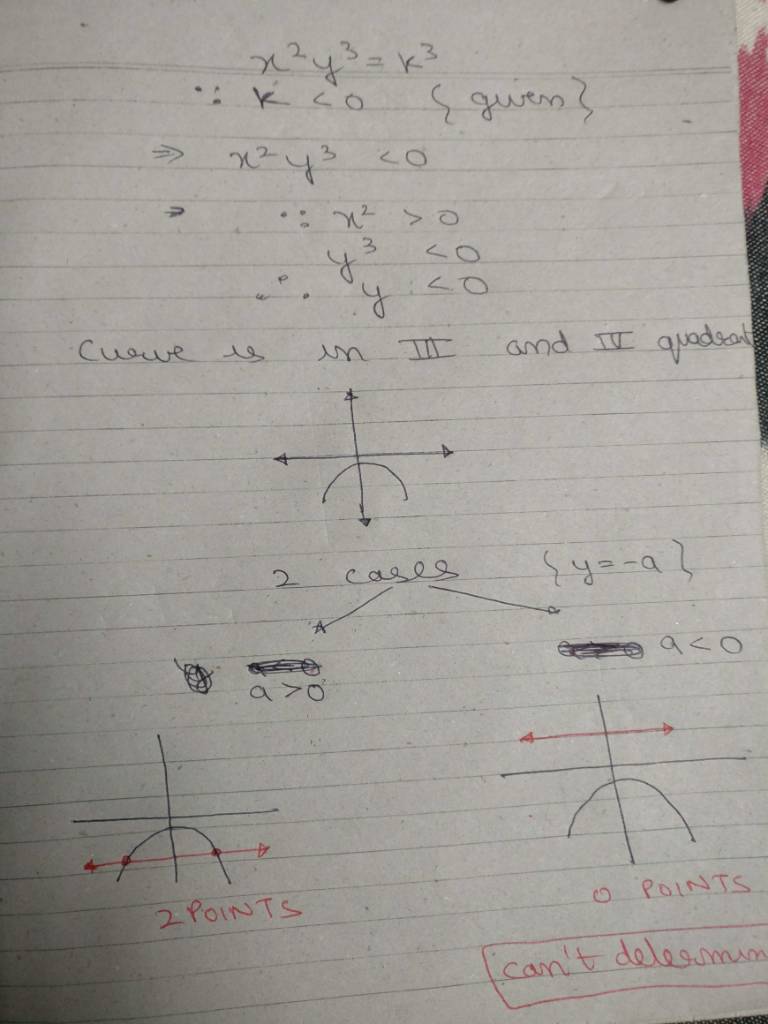 x² y³ = k³
∵ k < 0 { given }
⇒ x² y³ < 0
⇒ ∵ x² > 0
y³ < 0
∴ y < 0
Curve is in III and IV quadrant
2 cases { y = -a }
a > 0
a < 0
2 POINTS
0 POINTS
can't determin